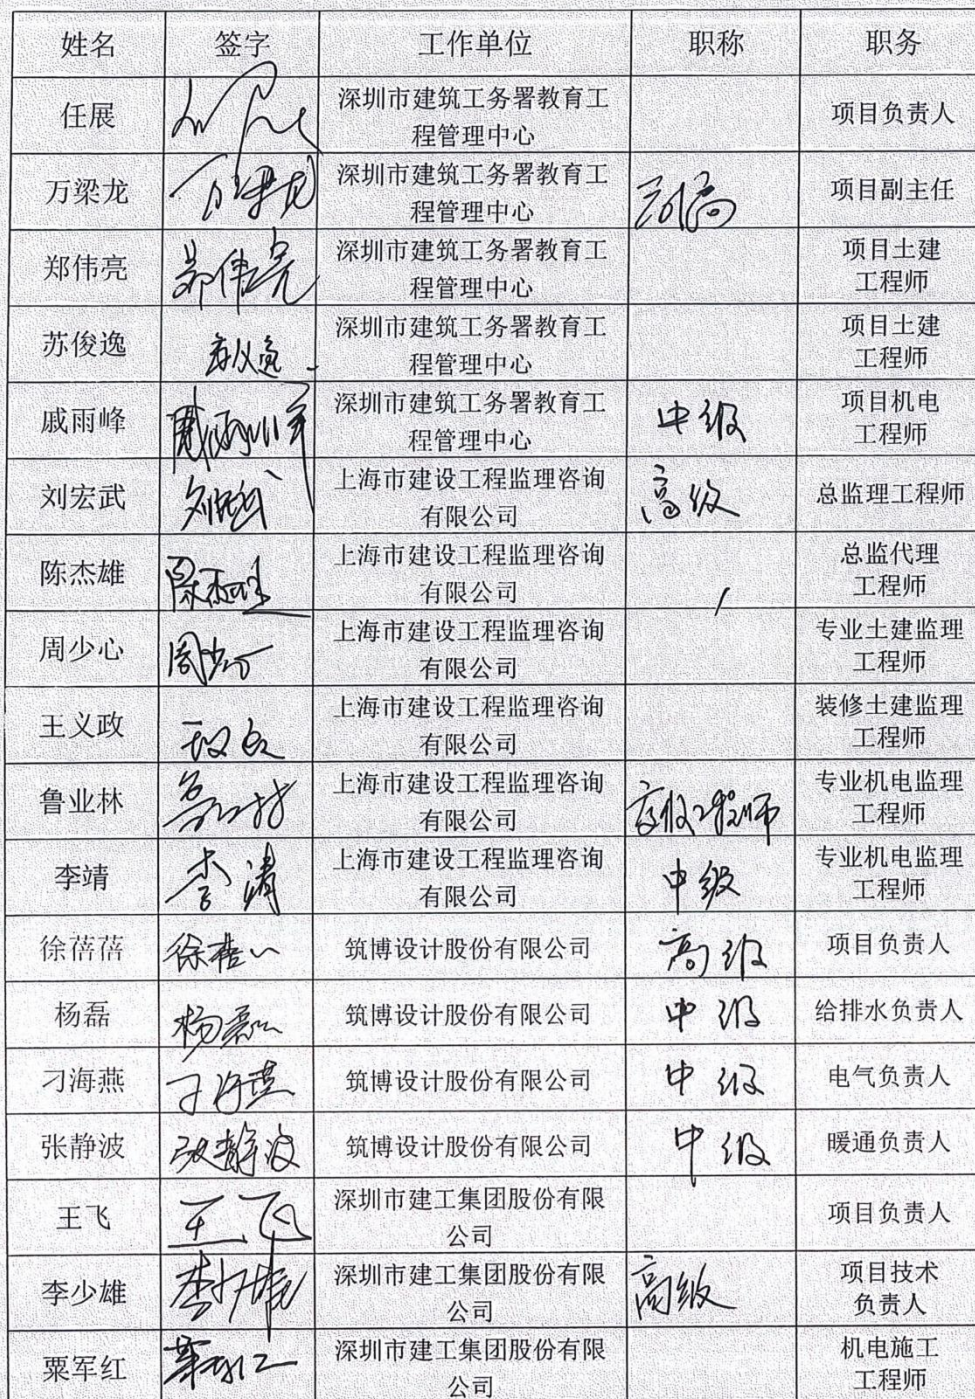 姓名 签字 工作单位 职称 职务
任展 深圳市建筑工务署教育工
程管理中心 项目负责人
万梁龙 万梁龙 深圳市建筑工务署教育工
程管理中心 项目副主任
郑伟亮 郑伟亮 深圳市建筑工务署教育工
程管理中心 项目土建
工程师
苏俊逸 深圳市建筑工务署教育工
程管理中心 项目土建
工程师
戚雨峰 戚雨峰 深圳市建筑工务署教育工
程管理中心 中级 项目机电
工程师
刘宏武 刘宏武 上海市建设工程监理咨询
有限公司 高级 总监理工程师
陈杰雄 陈杰雄 上海市建设工程监理咨询
有限公司 / 总监代理
工程师
周少心 周少心 上海市建设工程监理咨询
有限公司 专业土建监理
工程师
王义政 上海市建设工程监理咨询
有限公司 装修土建监理
工程师
鲁业林 鲁业林 上海市建设工程监理咨询
有限公司 高级工程师 专业机电监理
工程师
李靖 李靖 上海市建设工程监理咨询
有限公司 中级 专业机电监理
工程师
徐蓓蓓 筑博设计股份有限公司 高级 项目负责人
杨磊 杨磊 筑博设计股份有限公司 中级 给排水负责人
刁海燕 刁海燕 筑博设计股份有限公司 中级 电气负责人
张静波 张静波 筑博设计股份有限公司 中级 暖通负责人
王飞 王飞 深圳市建工集团股份有限
公司 项目负责人
李少雄 李少雄 深圳市建工集团股份有限
公司 高级 项目技术
负责人
粟军红 粟军红 深圳市建工集团股份有限
公司 机电施工
工程师